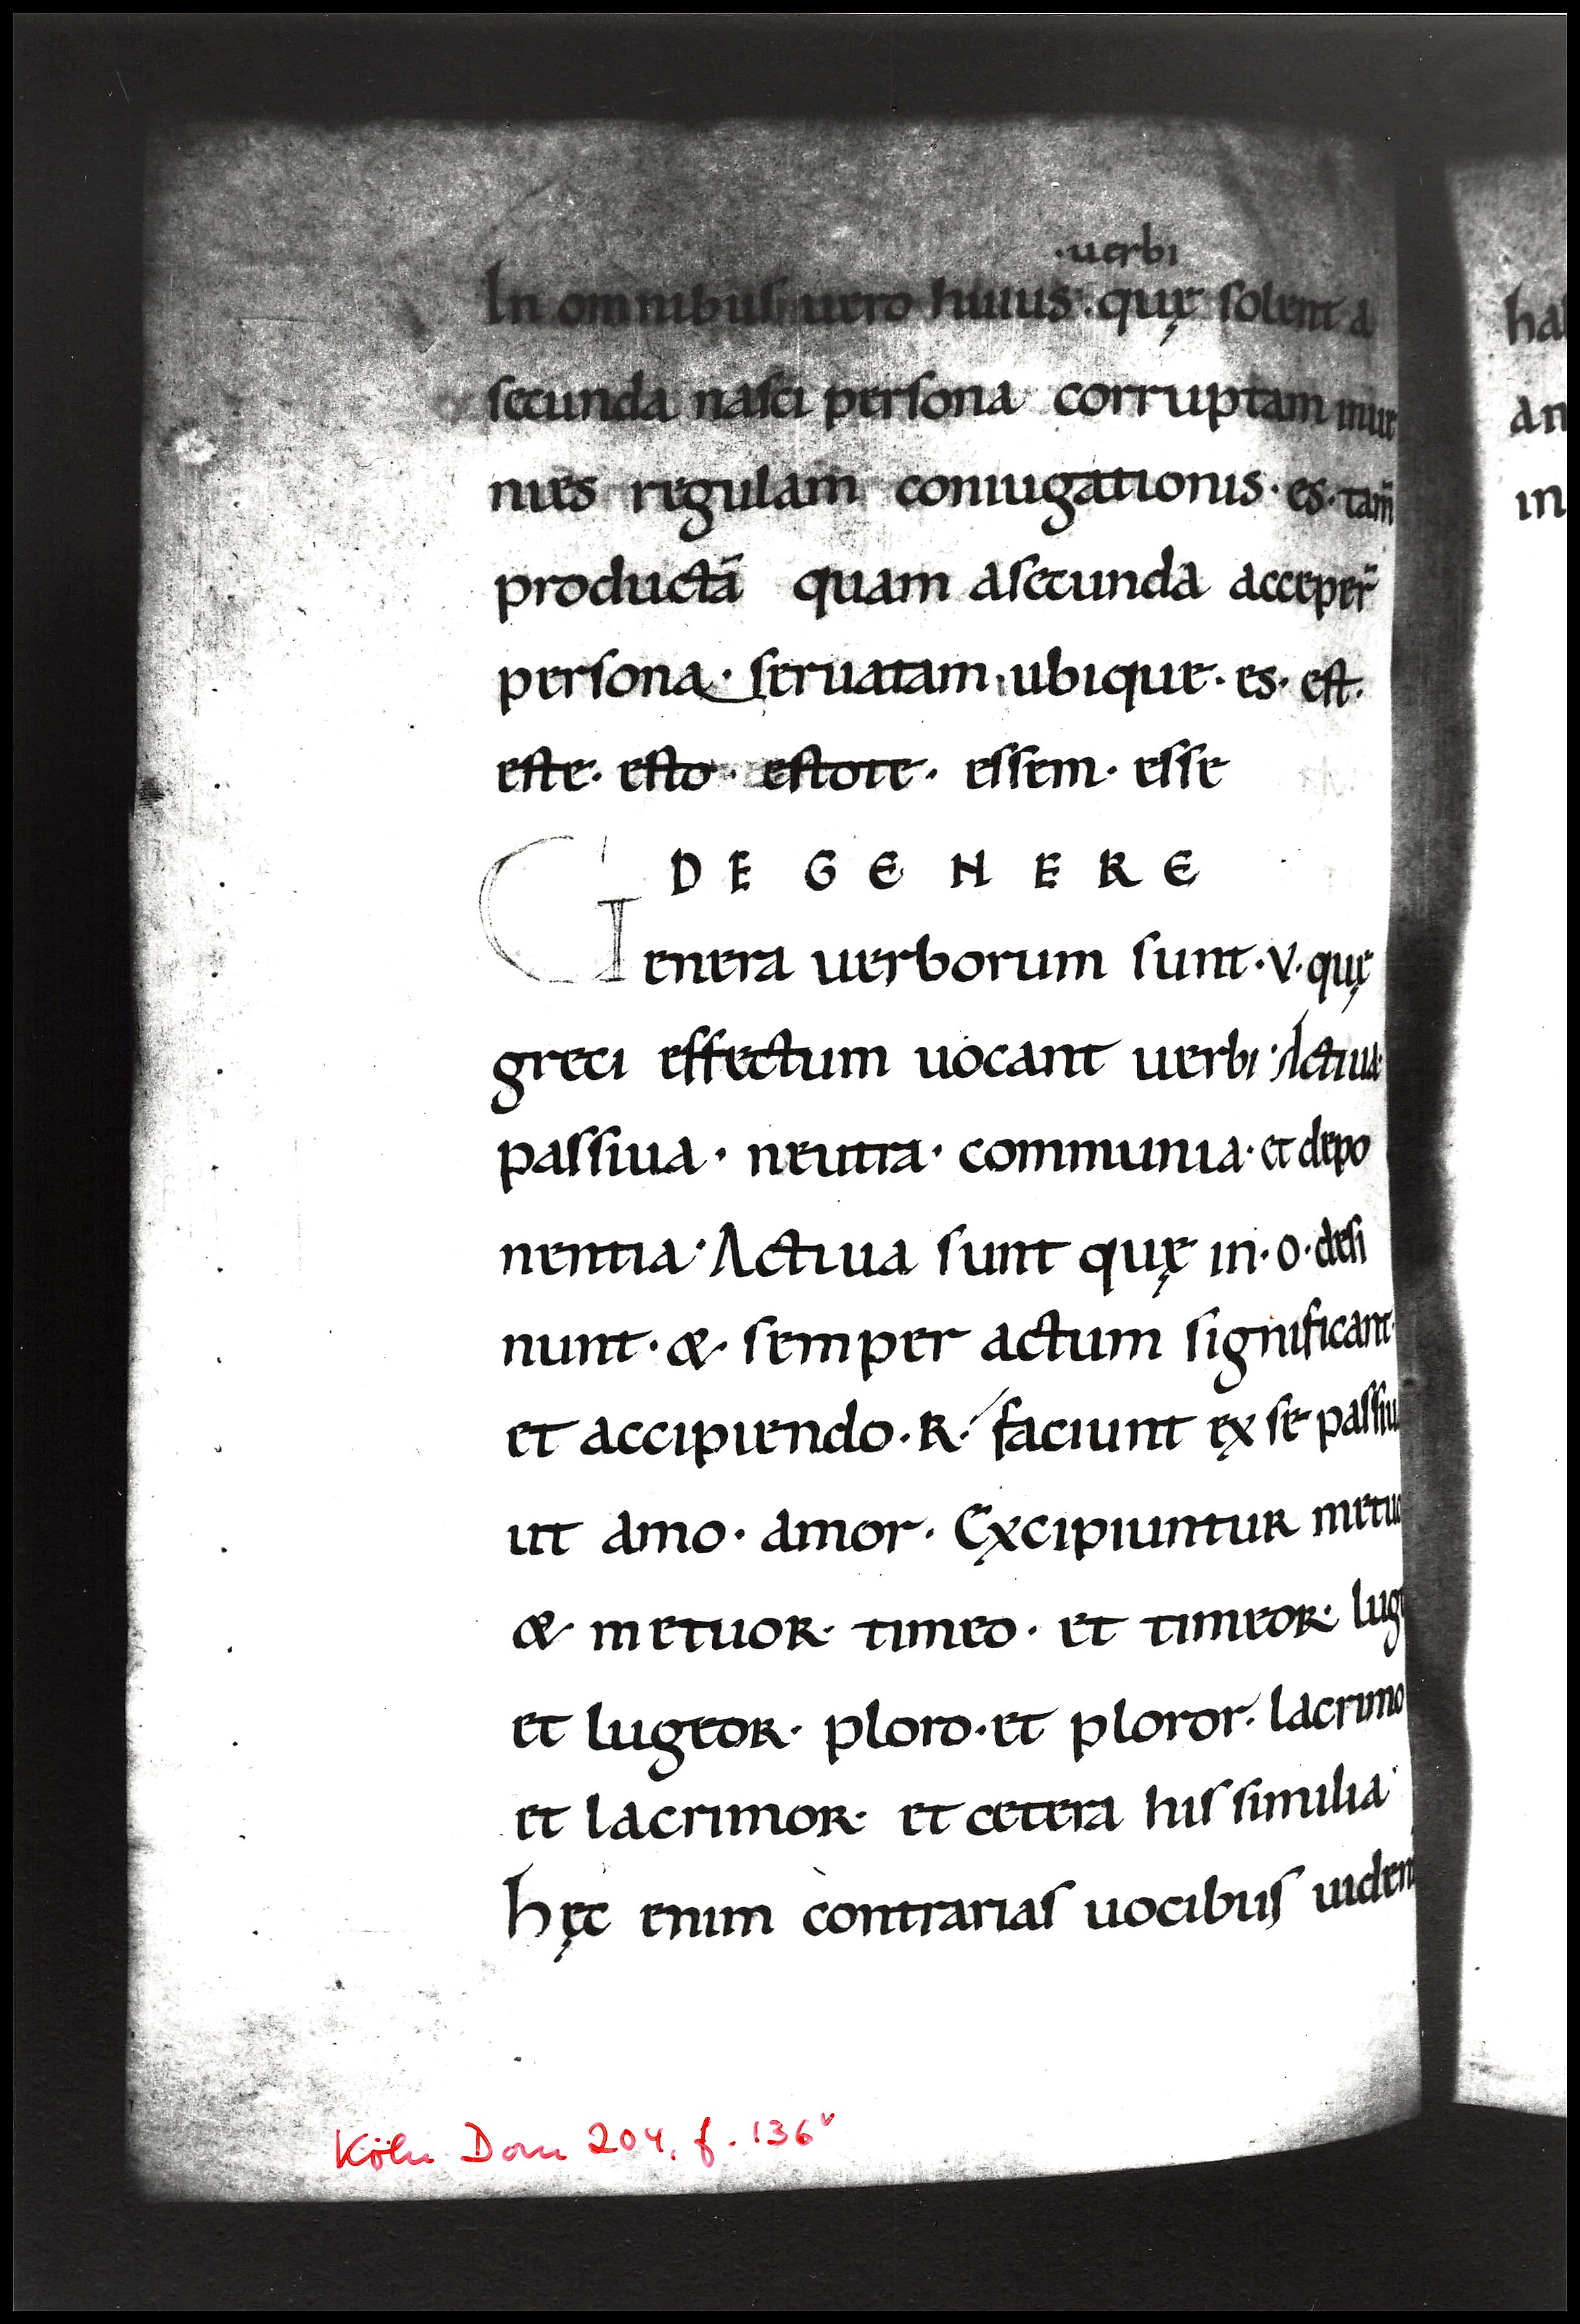 ·uerbi
In omnibus uero huius· quę solent a
secunda nasci persona corruptam inue
nies regulam coniugationis· es· tam̄
productā quam asecunda acceper̄
persona· seruatam· ubique· es· est·
este· esto· estote· essem· esse
DE GENERE
Genera uerborum sunt· V· quę
greci effectum uocant uerbi· Actiua·
passiua· neutra· communia· et depo
nentia· Actiua sunt quę in· o· desi
nunt· & semper actum significant·
et accipiendo· R· faciunt ex se passiu
ut amo· amor· Excipiuntur metuo
& metuor· timeo· et timeor· luge
et lugeor· ploro· et ploror· lacrimo
et lacrimor· et cetera his similia·
hęc enim contrarias uocibus uident
Köln Dom 204, f. 136v
hab
an
in